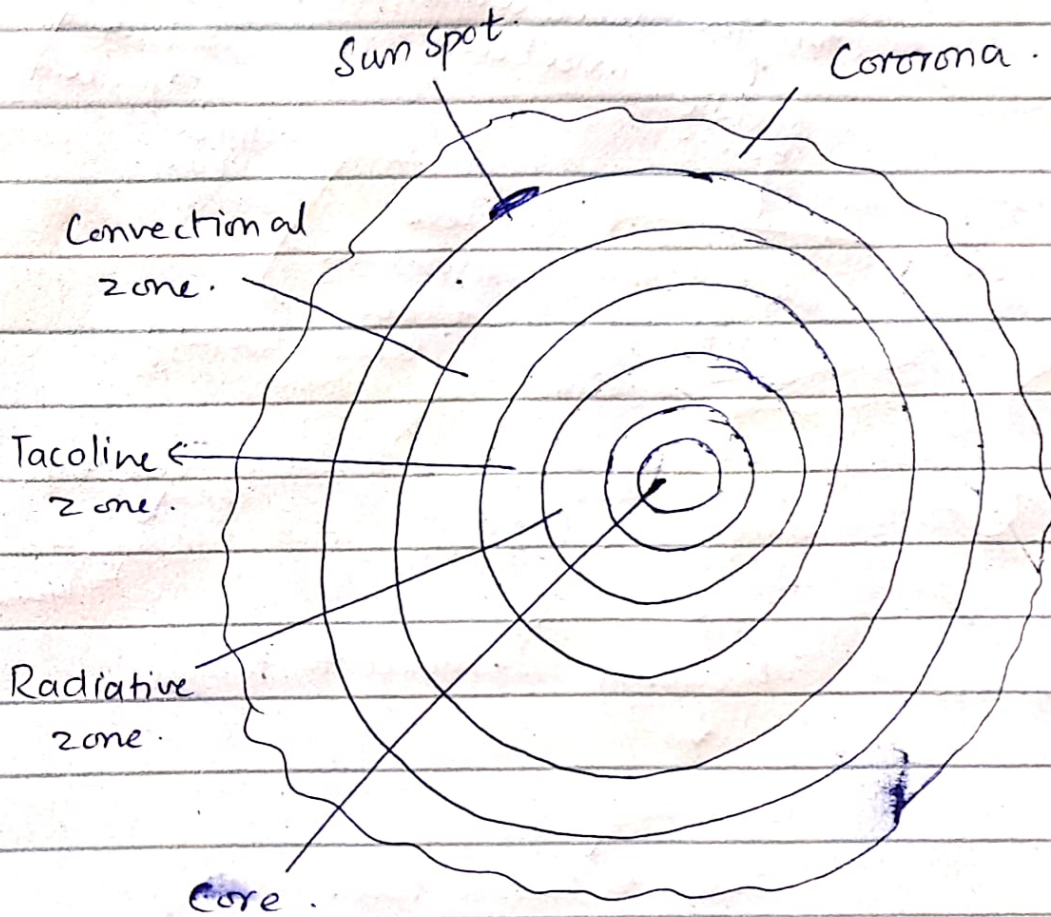 Sun spot.
Cororona.
Convectional
zone.
Tacoline
zone.
Radiative
zone.
Core.